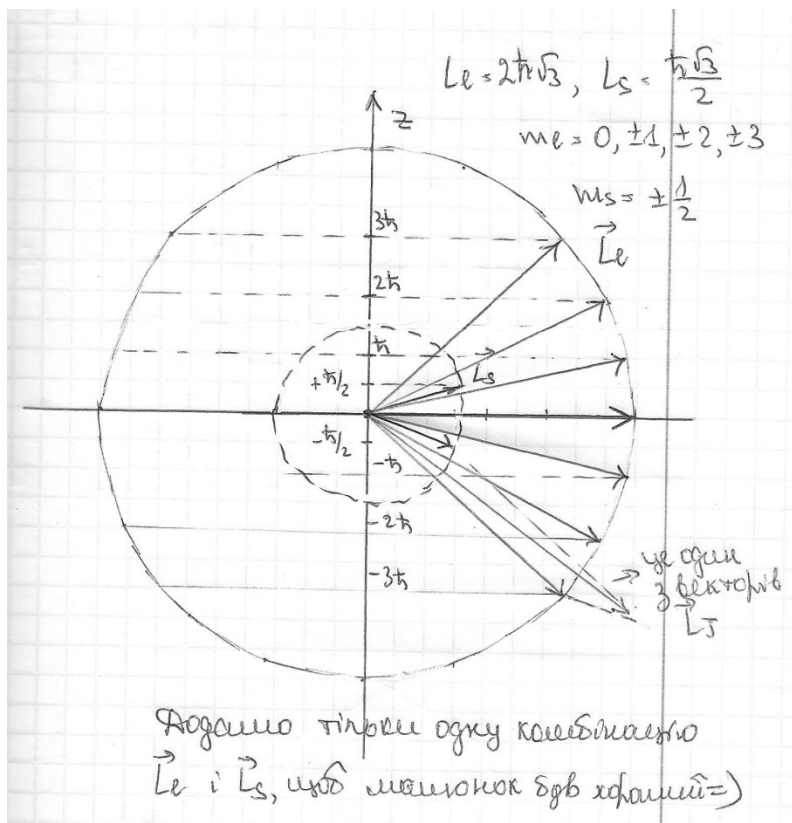 Lℓ = 2ħ√3, Ls = ħ√3/2
z
mℓ = 0, ±1, ±2, ±3
ms = ±1/2
3ħ
L⃗ℓ
2ħ
ħ
L⃗s
+ħ/2
-ħ/2
-ħ
-2ħ
це один
-3ħ
з векторів
L⃗J
Додамо тільки одну комбінацію
L⃗ℓ і L⃗s, щоб малюнок був хороший =)